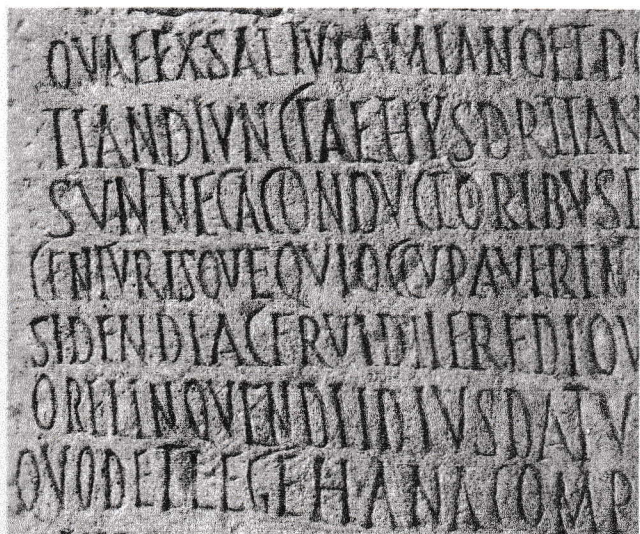 QVAEEXSALTVLAMIANOETD
TIANOIVNCTAEHVSDRITAN
SVNNNECACONDVCTORIBVSE
CENTVRISQVEQVIOCCVPAVERIN
SIDENDIACFRVINDIIEREDIQV
ORELINQVENDIIDIVSDATV
QVODETLEGEHANACOMP